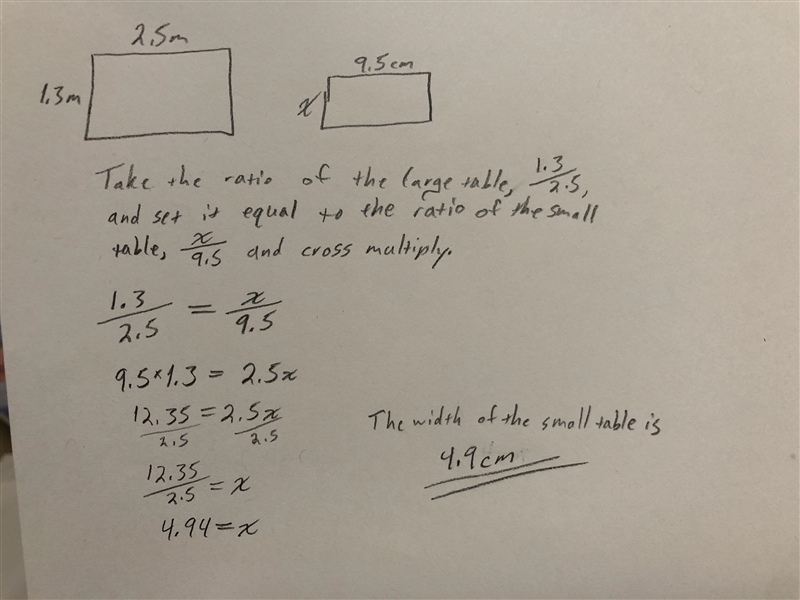 2.5m
9.5cm
1.3m
x
Take the ratio of the large table, 1.3/2.5,
and set it equal to the ratio of the small
table, x/9.5 and cross multiply.
1.3/2.5 = x/9.5
9.5×1.3 = 2.5x
12.35/2.5 = 2.5x/2.5
12.35/2.5 = x
4.94 = x
The width of the small table is
4.9cm